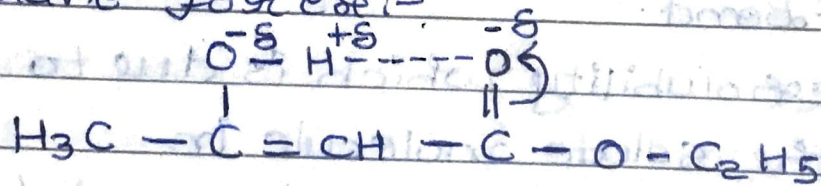 O-δ - H+δ ------ O-δ
|            ||
H3C - C = CH - C - O - C2H5